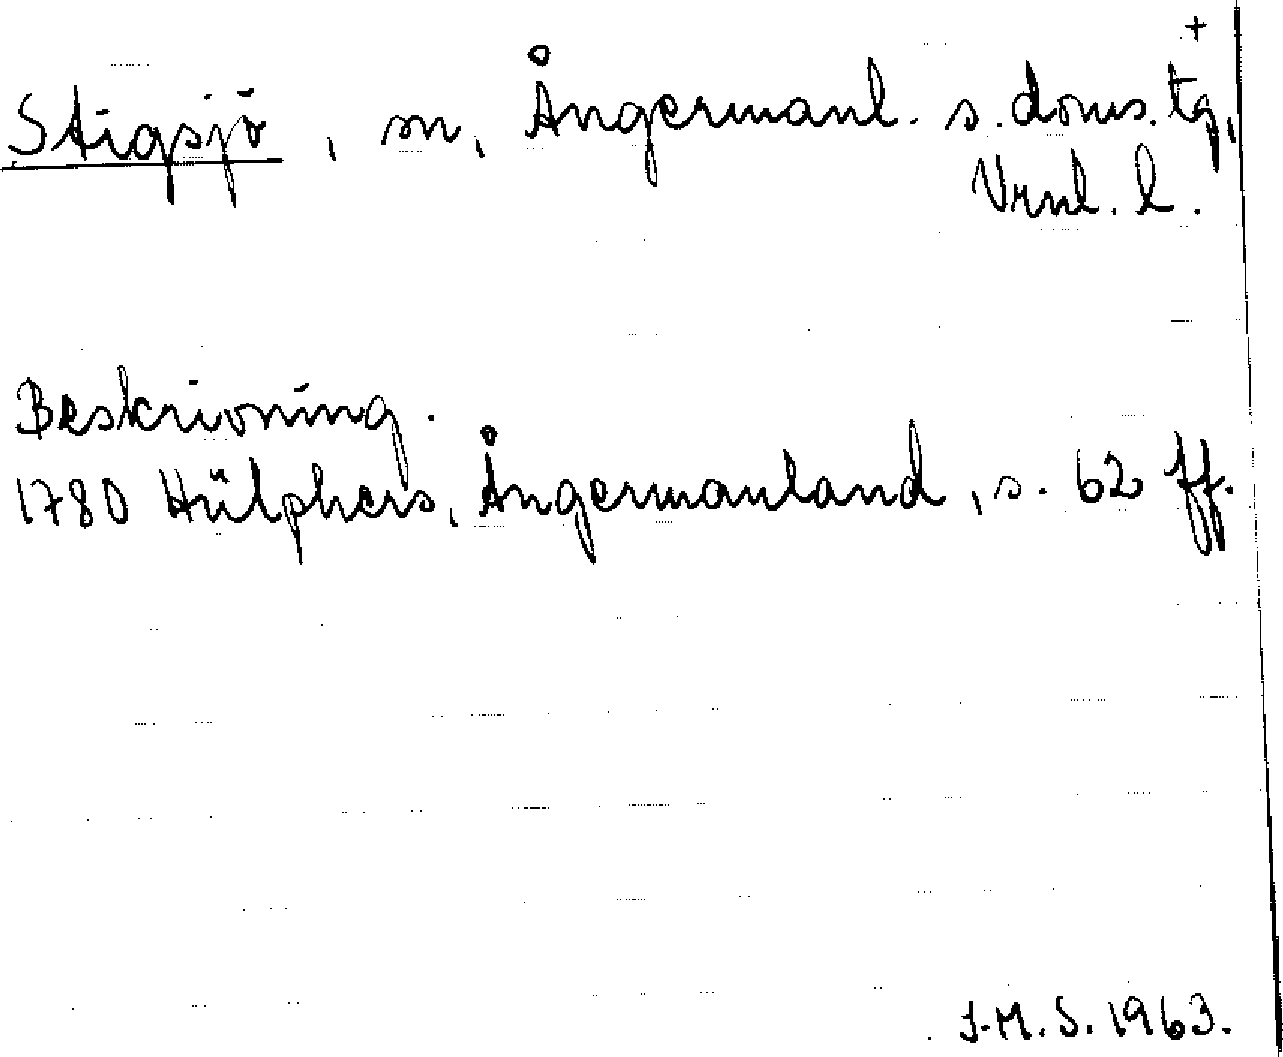 +
Stigsjö, sn, Ångermanl. s. doms. tg,
Vrnl. l.
Beskrivning.
1780 Hülphers, Ångermanland, s. 62 ff.
J.M.S. 1963.